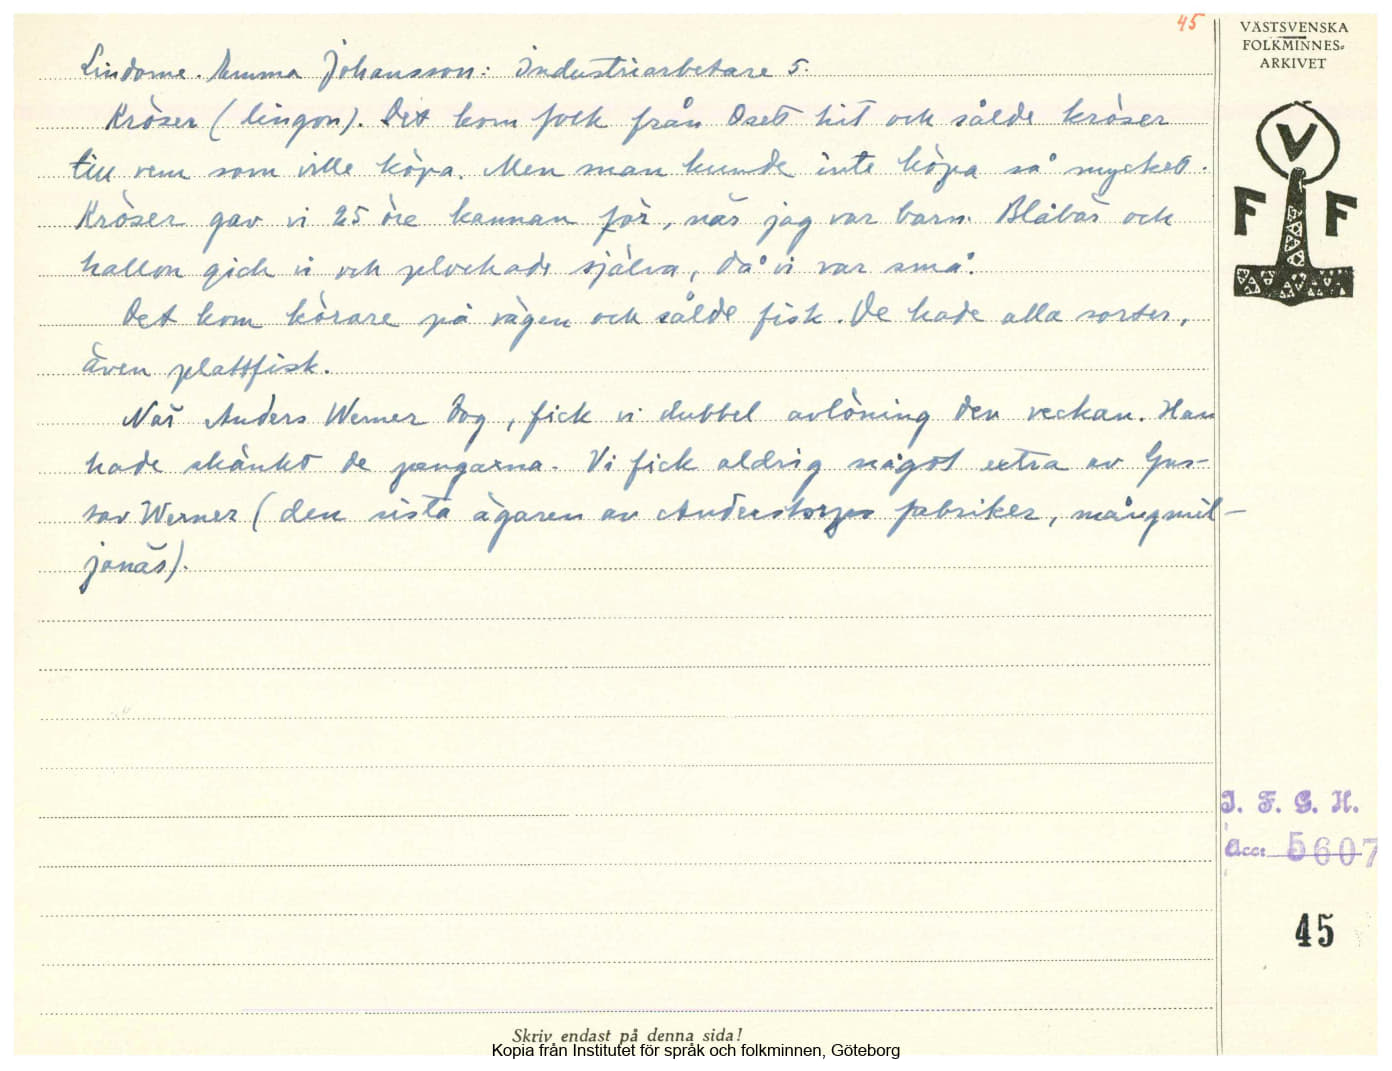 45
VÄSTSVENSKA
FOLKMINNES-
ARKIVET
V
F F
Lindome. Emma Johansson: Industriarbetare 5.
Kröser (lingon). Det kom folk från Oset hit och sålde kröser
till vem som ville köpa. Men man kunde inte köpa så mycket.
Kröser gav vi 25 öre kannan för, när jag var barn. Blåbär och
hallon gick vi och plockade själva, då vi var små.
Det kom körare på vägen och sålde fisk. De hade alla sorter,
även plattfisk.
När Anders Werner dog, fick vi dubbel avlöning den veckan. Han
hade skänkt de pengarna. Vi fick aldrig något extra av Gus-
tav Werner (den sista ägaren av Anderstorps fabriker, mångmil-
jonär).
I. F. G. H.
Acc: 5607
45
Skriv endast på denna sida!
Kopia från Institutet för språk och folkminnen, Göteborg